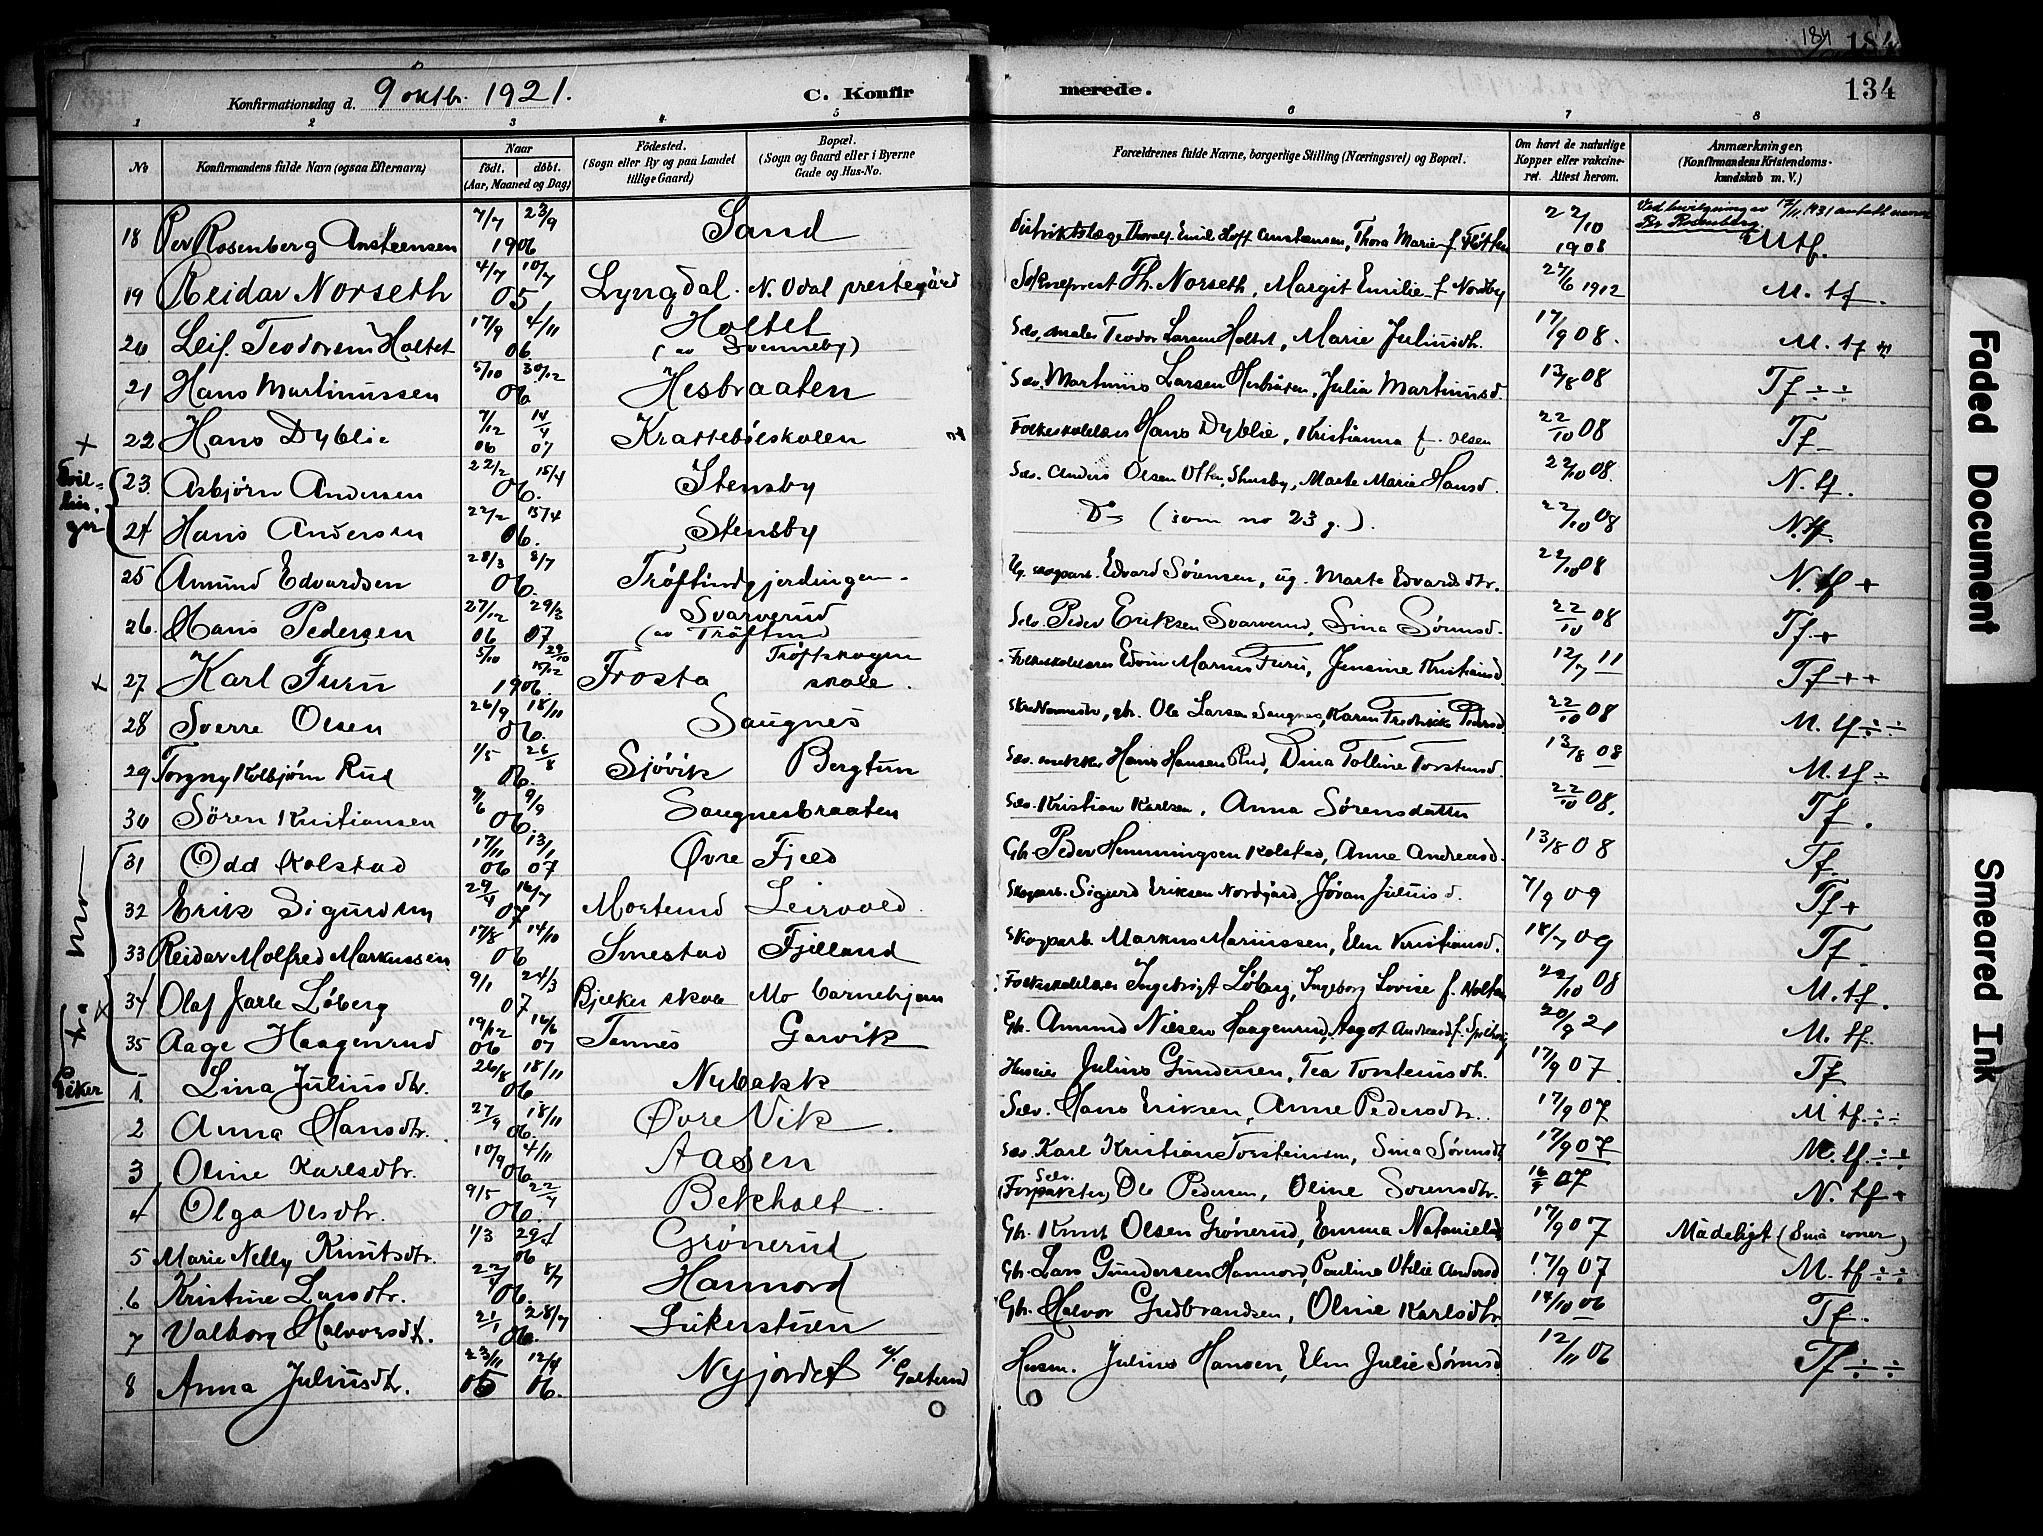 184 184
Konfirmationsdag d. 9 oktbr. 1921. C. Konfirmerede. 134
1 2 3 4 5 6 7 8
No Konfirmandens fulde Navn (ogsaa Efternavn) Naar födt. döbt. (Aar, Maaned og Dag) Födested. (Sogn eller By og paa Landet tillige Gaard) Bopæl. (Sogn og Gaard eller i Byerne Gade og Hus-No. Forældrenes fulde Navne, borgerlige Stilling (Næringsvei) og Bopæl. Om havt de naturlige Kopper eller vakcineret. Attest herom. Anmærkninger, (Konfirmandens Kristendomskundskab m. V.)
18 Per Rosenberg Ansteensen 7/7 23/9 1906 Sand Distriktslæge Thoralf Emil Hoff Ansteensen, Thora Marie f. 22/10 1908 Ved bevilgning av 17/11 1931 antatt navnet Per Rosenberg M tf.
19 Reidar Norseth 4/7 10/7 05 Lyngdal. N. Odal prestegård Sokneprest Th. Norseth, Margit Emilie f Nordby 27/6 1912 M. tf.
20 Leif Teodorsen Holtet 17/9 4/11 06 Holtet (av Svenneby) Selv. Teodor Larsen Holtet, Marie Juliusdtr. 17/9 08. M. tf
21 Hans Martinussen 5/10 30/12 06 Hesbraaten Selv. Martinus Larsen Hesbråten, Julia Martinusd. 13/8 08 Tf ÷ ÷
+ 22 Hans Dyblie 7/12 06 14/4 07 Krattebölskolen Folkeskolelærer Hans Dyblie, Kristianna f. Olsen 22/10 08 Tf
Tvillinger { 23. Asbjörn Andersen 22/2 15/4 06. Stensby Selv. Anders Olsen Stensby, Marte Marie Hansd. 22/10 08. N. tf.
24 Hans Andersen 22/2 15/4 06. Stensby Do (som no 23 g.). 22/10 08 N. tf.
25 Amund Edvardsen 28/3 8/7 06. Tröftindgjerdingen. Ug. skogsarb. Edvard Sörensen, ug. Marte Edvardsdtr. 22/10 08 N. tf +
26. Hans Pedersen 27/12 06 29/3 07 Svarverud (av Tröftind) Selv. Peder Eriksen Svarverud, Sina Sörensd. 22/10 08 Tf. +
+ 27 Karl Furu 5/10 29/10 15/12 1906. Frosta Tröftskogen skole. Folkeskolelærer Edvin Marius Furu, Jensine Kristiansd. 12/7 11 Tf + +
28 Sverre Olsen 26/9 18/11 06. Saugnes Ole Larsen Saugnes, Karen Fredrikke Pedersd. 22/10 08 M. tf ÷ ÷
29 Torgny Kolbjörn Rud 1/5 26/8 06. Sjövik Bergtun Selv. snekker Hans Hansen Rud, Dina Tolline Torstensd. 13/8 08 M. tf ÷
30 Sören Kristiansen 9/6 9/9 06. Saugnesbraaten Selv. Kristian Karlsen, Anna Sörensdatter 22/10 08. Tf.
Fra Mo { 31 Odd Kolstad 17/11 06 13/1 07 Övre Fjeld Gbr. Peder Hemmingsen Kolstad, Anne Andreasd. 13/8 08 Tf
32 Erik Sigurdsen 29/4 14/7 07 Mortsund Leirvold. Skogsarb. Sigurd Eriksen Nordgård, Jöran Juliusd. 7/9 09 Tf +
33 Reidar Molfred Markussen 17/8 14/10 06 Smestad Fjelland Skogsarb. Markus Mariussen, Elen Kristiansd. 18/7 09 Tf
x 34 Olaf Jarle Löberg 9/1 24/3 07 Bjerker skole Mo barnehjem Folkeskolelærer Ingebrigt Löberg, Ingeborg Lovise f. Holtan 22/10 08 M. tf.
35 Aage Haagenrud 19/12 06 16/6 07 Tannes Garvik Gbr. Amund Nilsen Haagenrud, Aagot Andreasd. f. 20/9 21 M. tf.
Piker 1. Lina Juliusdtr. 26/8 18/11 06 Nybakk Huseier Julius Gundersen, Tea Torsteinsdtr. 17/9 07. Tf
2 Anna Hansdtr. 27/9 18/11 06. Övre Vik. Selv. Hans Eriksen, Anne Pedersdtr. 17/9 07 M tf. ÷ ÷
3 Oline Karlsdtr. 10/9 4/11 06 Aasen Selv. Karl Kristian Torsteinsen, Sina Sörensdtr 17/9 07 M. tf. ÷ ÷
4 Olga Olesdtr. 9/5 22/7 06. Bekholt. Selv. (Forpakter) Ole Pedersen, Oline Sorensdtr. 16/9 07 N. tf +
5 Marie Nelly Knutsdtr. 1/3 29/4 06 Grönerud Gbr. Knut Olsen Grönerud, Emma Natanielsd 17/9 07 Mådeligt (Små evner)
6 Kristine Larsdtr. 22/4 8/7 06. Hannord Gbr. Lars Gundersen Hannord, Pauline Otelie Andersd 17/9 07 M. tf ÷ ÷
7 Valborg Halvorsdtr. 21/1 28/7 06. Halvor Gudbrandsen, Oline Karlsdtr. 14/10 06 Tf.
8 Anna Juliusdtr. 23/11 05 12/4 06. Nyjordet u/ Galterud Husm. Julius Hansen, Elen Julie Sörensd 12/11 06 Tf ÷ ÷
Faded Document
Smeared Ink